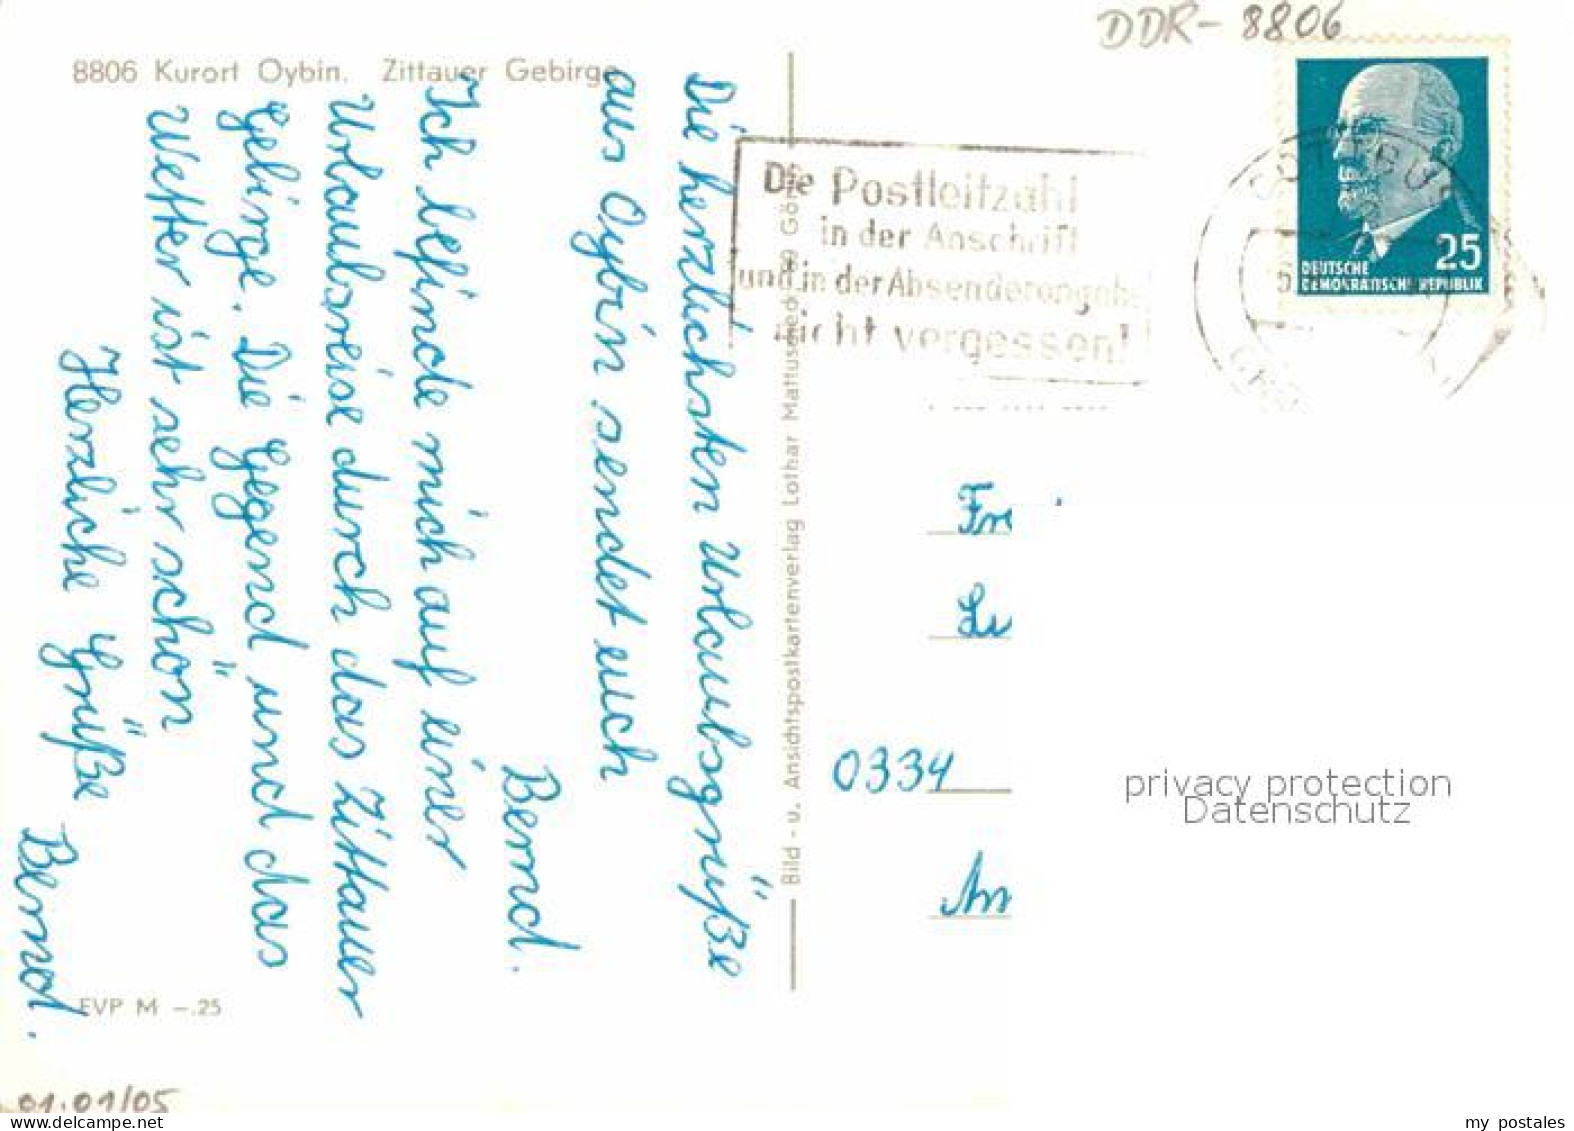 DDR - 8806
8806 Kurort Oybin. Zittauer Gebirge
Die herzlichsten Urlaubsgrüße
aus Oybin sendet euch
Bernd.
Ich befinde mich auf einer
Urlaubsreise durch das Zittauer
Gebirge. Die Gegend und das
Wetter ist sehr schön
Herzliche Grüße
Bernd.
EVP M -.25
01.01/05
Bild - u. Ansichtspostkartenverlag Lothar Mattusched
Die Postleitzahl
in der Anschrift
und in der Absenderangabe
nicht vergessen!
25
DEUTSCHE
DEMOKRATISCHE REPUBLIK
Fr
0334
privacy protection
Datenschutz
delcampe.net
my_postales